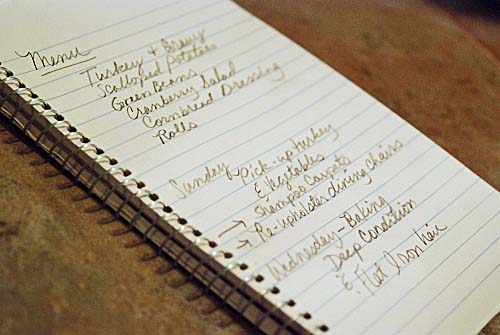 Menu
Turkey + Gravy
Scalloped Potatoes
Green Beans
Cranberry Salad
Cornbread Dressing
Rolls
Sunday pick-up turkey
& Vegetables
Shampoo Carpets
→ Re-upholster dining chairs
→ Wednesday - Baking
Deep Condition
& Flat Iron hair